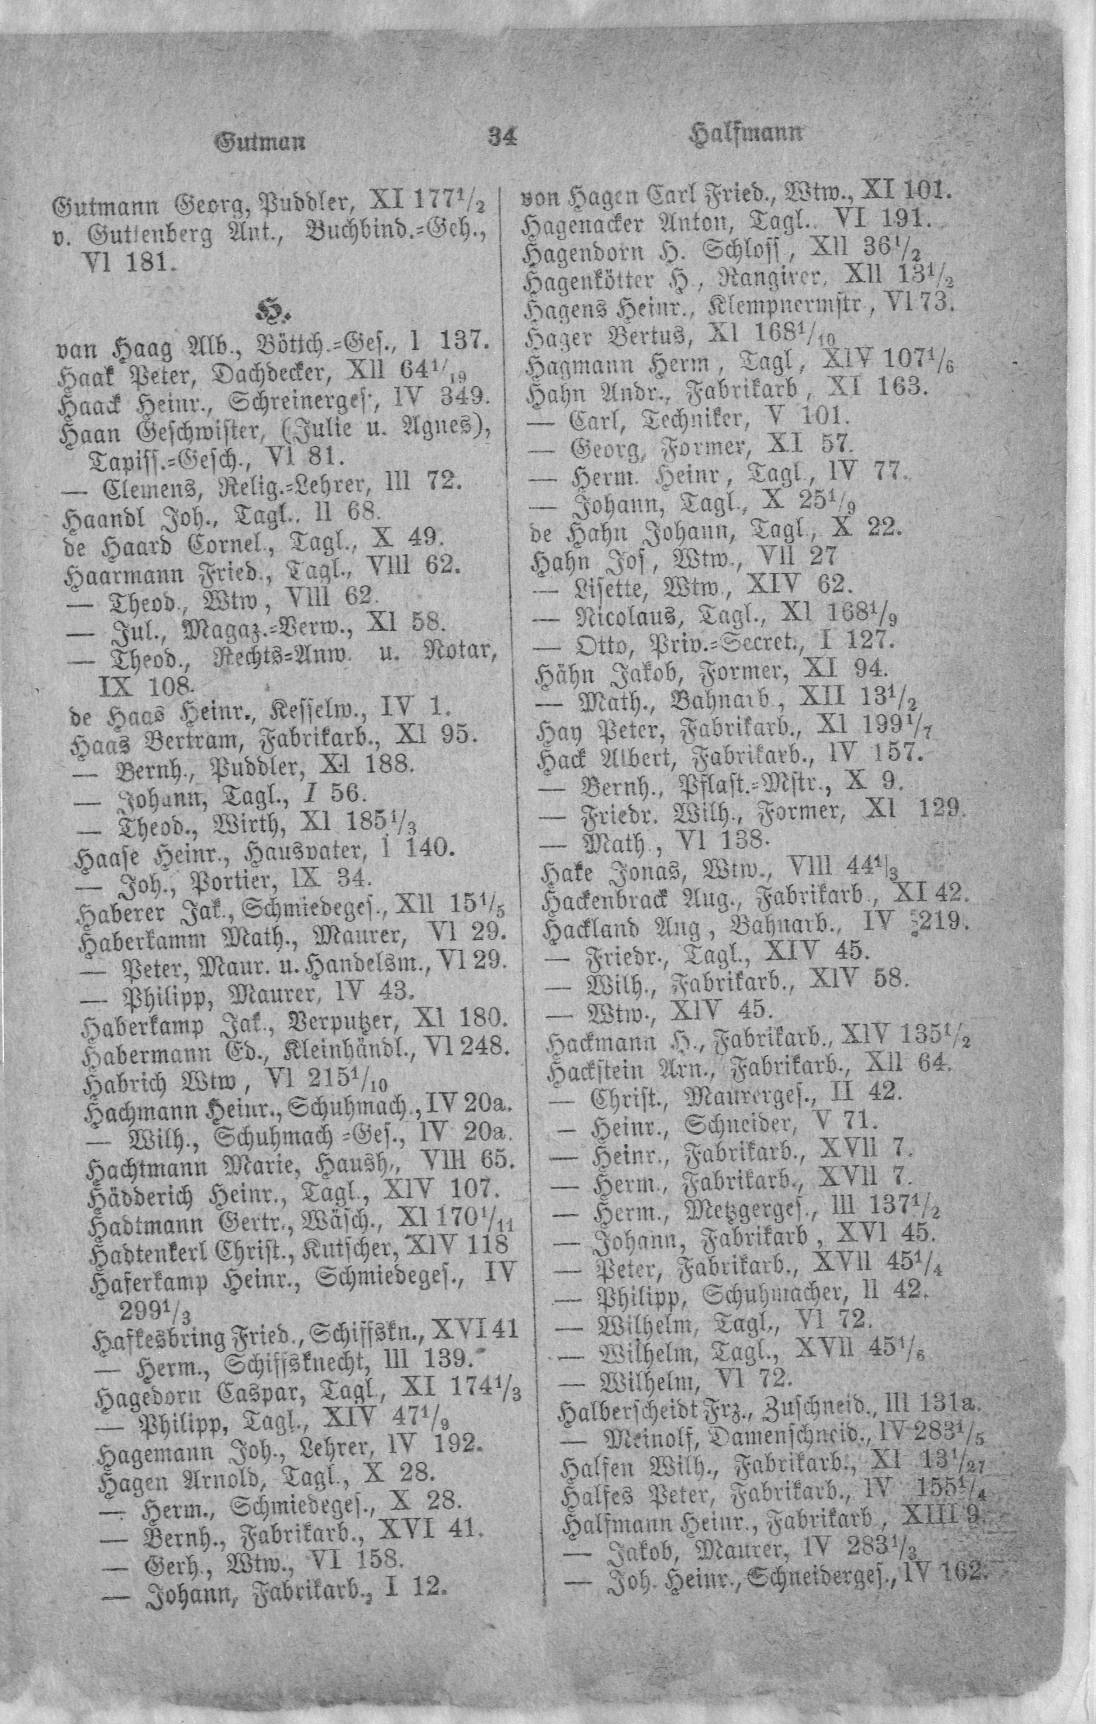 Gutman 34 Halfmann
Gutmann Georg, Puddler, XI 177 1/2
v. Guttenberg Ant., Buchbind.=Geh.,
VI 181.
H.
van Haag Alb., Böttch.=Ges., I 137.
Haak Peter, Dachdecker, XII 64 1/19
Haack Heinr., Schreinerges., IV 349.
Haan Geschwister, (Julie u. Agnes),
Tapiss.=Gesch., VI 81.
— Clemens, Relig.=Lehrer, III 72.
Haandl Joh., Tagl., II 68.
de Haard Cornel., Tagl., X 49.
Haarmann Fried., Tagl., VIII 62.
— Theod., Wtw, VIII 62.
— Jul., Magaz.=Verw., XI 58.
— Theod., Rechts=Anw. u. Notar,
IX 108.
de Haas Heinr., Kesselw., IV 1.
Haas Bertram, Fabrikarb., XI 95.
— Bernh., Puddler, XI 188.
— Johann, Tagl., I 56.
— Theod., Wirth, XI 185 1/3
Haase Heinr., Hausvater, I 140.
— Joh., Portier, IX 34.
Haberer Jak., Schmiedeges., XII 15 1/5
Haberkamm Math., Maurer, VI 29.
— Peter, Maur. u. Handelsm., VI 29.
— Philipp, Maurer, IV 43.
Haberkamp Jak., Verputzer, XI 180.
Habermann Ed., Kleinhändl., VI 248.
Habrich Wtw, VI 215 1/10
Hachmann Heinr., Schuhmach., IV 20a.
— Wilh., Schuhmach =Ges., IV 20a.
Hachtmann Marie, Haush., VIII 65.
Hädderich Heinr., Tagl., XIV 107.
Hadtmann Gertr., Wäsch., XI 170 1/11
Hadtenkerl Christ., Kutscher, XIV 118
Haferkamp Heinr., Schmiedeges., IV
299 1/3
Hafkesbring Fried., Schiffskn., XVI 41
— Herm., Schiffsknecht, III 139.
Hagedorn Caspar, Tagl., XI 174 1/3
— Philipp, Tagl., XIV 47 1/9
Hagemann Joh., Lehrer, IV 192.
Hagen Arnold, Tagl., X 28.
— Herm., Schmiedeges., X 28.
— Bernh., Fabrikarb., XVI 41.
— Gerh., Wtw., VI 158.
— Johann, Fabrikarb., I 12.
von Hagen Carl Fried., Wtw., XI 101.
Hagenacker Anton, Tagl., VI 191.
Hagendorn H. Schloss, XII 36 1/2
Hagenkötter H., Rangirer, XII 13 1/2
Hagens Heinr., Klempnermstr., VI 73.
Hager Bertus, XI 168 1/10
Hagmann Herm, Tagl, XIV 107 1/6
Hahn Andr., Fabrikarb, XI 163.
— Carl, Techniker, V 101.
— Georg, Former, XI 57.
— Herm. Heinr, Tagl., IV 77.
— Johann, Tagl., X 25 1/9
de Hahn Johann, Tagl., X 22.
Hahn Jos, Wtw., VII 27
— Lisette, Wtw., XIV 62.
— Nicolaus, Tagl., XI 168 1/9
— Otto, Priv.=Secret., I 127.
Hähn Jakob, Former, XI 94.
— Math., Bahnarb, XII 13 1/2
Hay Peter, Fabrikarb., XI 199 1/7
Hack Albert, Fabrikarb., IV 157.
— Bernh., Pflast.=Mstr., X 9.
— Friedr. Wilh., Former, XI 129.
— Math., VI 138.
Hake Jonas, Wtw., VIII 44 1/3
Hackenbrack Aug., Fabrikarb., XI 42.
Hackland Aug, Bahnarb., IV 219.
— Friedr., Tagl., XIV 45.
— Wilh., Fabrikarb., XIV 58.
— Wtw., XIV 45.
Hackmann H., Fabrikarb., XIV 135 1/2
Hackstein Arn., Fabrikarb., XII 64.
— Christ., Maurerges., II 42.
— Heinr., Schneider, V 71.
— Heinr., Fabrikarb., XVII 7.
— Herm., Fabrikarb., XVII 7.
— Herm., Metzgerges., III 137 1/2
— Johann, Fabrikarb, XVI 45.
— Peter, Fabrikarb., XVII 45 1/4
— Philipp, Schuhmacher, II 42.
— Wilhelm, Tagl., VI 72.
— Wilhelm, Tagl., XVII 45 1/6
— Wilhelm, VI 72.
Halberscheidt Frz., Zuschneid., III 131a.
— Meinolf, Damenschneid., IV 283 1/5
Halfen Wilh., Fabrikarb., XI 13 1/27
Halfes Peter, Fabrikarb., IV 155 1/4
Halfmann Heinr., Fabrikarb, XIII 9.
— Jakob, Maurer, IV 283 1/3
— Joh. Heinr., Schneiderges., IV 162.